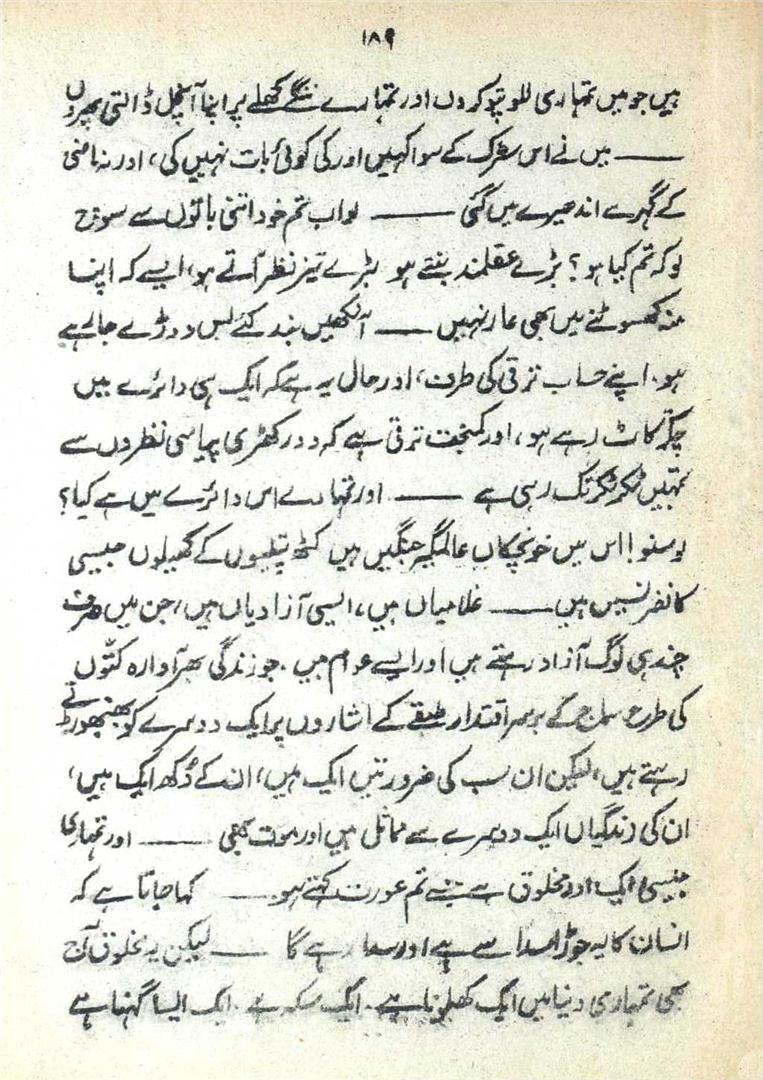 ۱۸۹
ہیں جو میں تمہاری للو پتو کروں اور تمہارے ننگے کھلے پر اپنا آنچل ڈالتی پھروں
—— میں نے اس سڑک کے سوا کہیں اور کی کوئی بات نہیں کی، اور نہ ماضی
کے گہرے اندھیرے میں گئی —— لو اب تم خود اتنی باتوں سے سوچ
لو کہ تم کیا ہو؟ بڑے عقلمند بنتے ہو بڑے تیز نظر آتے ہو، ایسے کہ اپنا
منہ کھسوٹنے میں بھی عار نہیں —— آنکھیں بند کئے بس دوڑے جا رہے
ہو۔ اپنے حساب ترقی کی طرف، اور حال یہ ہے کہ ایک ہی دائرے میں
چکّر کاٹ رہے ہو، اور کمبخت ترقی ہے کہ دور کھڑی پیاسی نظروں سے
تمہیں ٹکر ٹکر تک رہی ہے —— اور تمہارے اس دائرے میں ہے کیا؟
لو سنو! اس میں خونچکاں عالمگیر جنگیں ہیں کٹھ پتلیوں کے کھیلوں جیسی
کانفرنسیں ہیں —— غلامیاں ہیں، ایسی آزادیاں ہیں، جن میں صرف
چند ہی لوگ آزاد رہتے ہیں اور ایسے عوام ہیں۔ جو زندگی بھر آوارہ کتّوں
کی طرح سماج کے برسرِ اقتدار طبقے کے اشاروں پر ایک دوسرے کو بھنبھوڑتے
رہتے ہیں، لیکن ان سب کی ضرورتیں ایک ہیں، ان کے دُکھ ایک ہیں،
ان کی زندگیاں ایک دوسرے سے مماثل ہیں اور موت بھی —— اور تمہاری
جیسی ایک اور مخلوق ہے جسے تم عورت کہتے ہو —— کہا جاتا ہے کہ
انسان کا یہ جوڑا سدا سے ہے اور سدا رہے گا —— لیکن یہ مخلوق آج
بھی تمہاری دنیا میں ایک کھلونا ہے۔ ایک سکہ ہے۔ ایک ایسا گہنا ہے